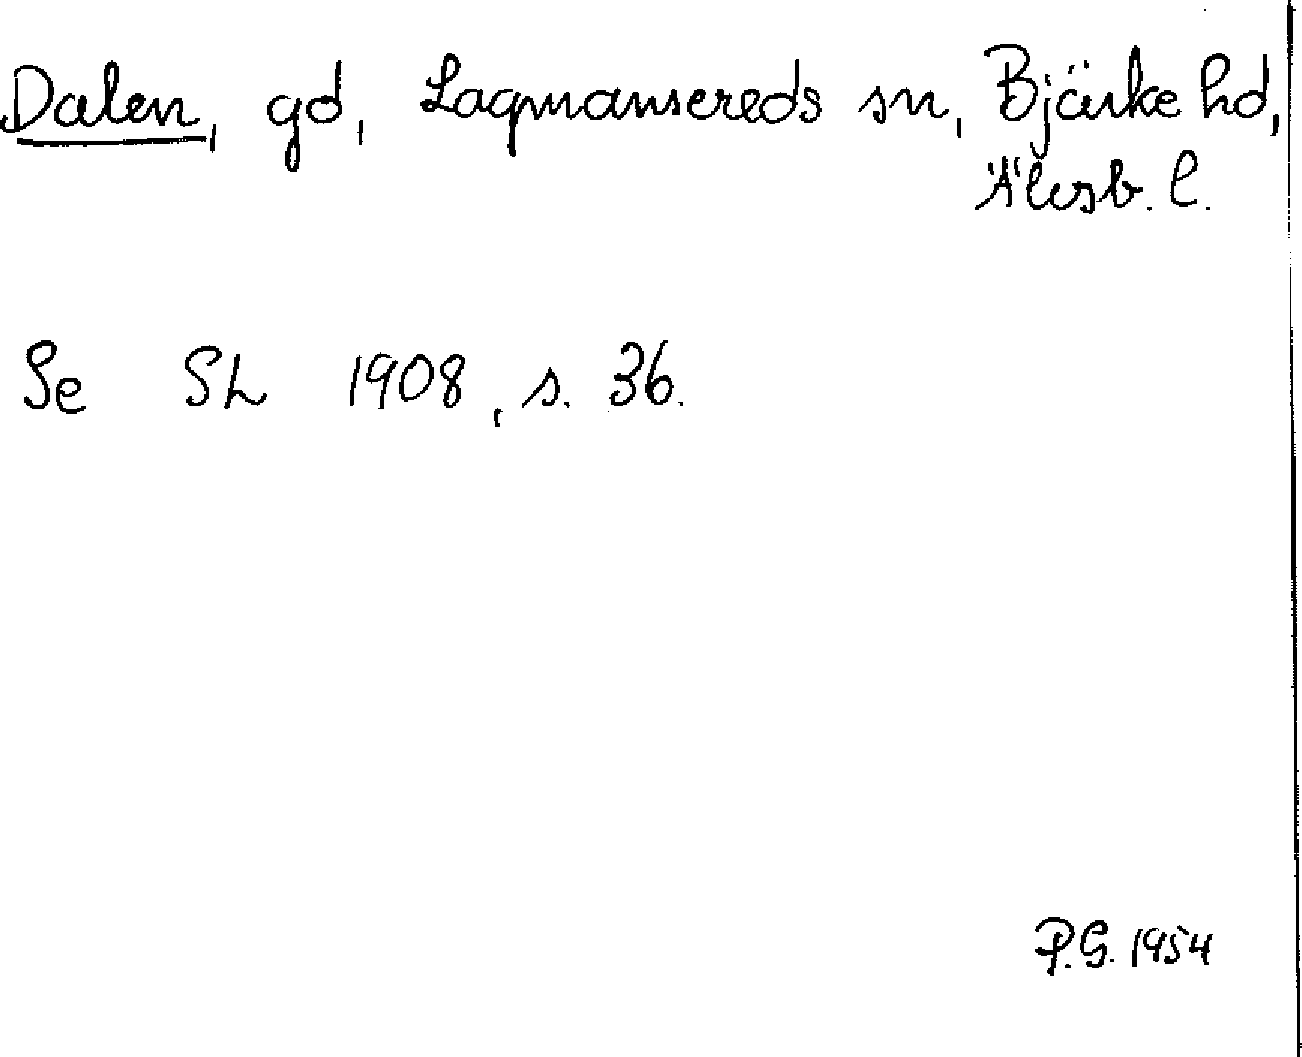 Dalen, gd, Lagmansereds sn, Bjärke hd,
Älvsb. l.
Se SL 1908, s. 36.
P.G. 1954